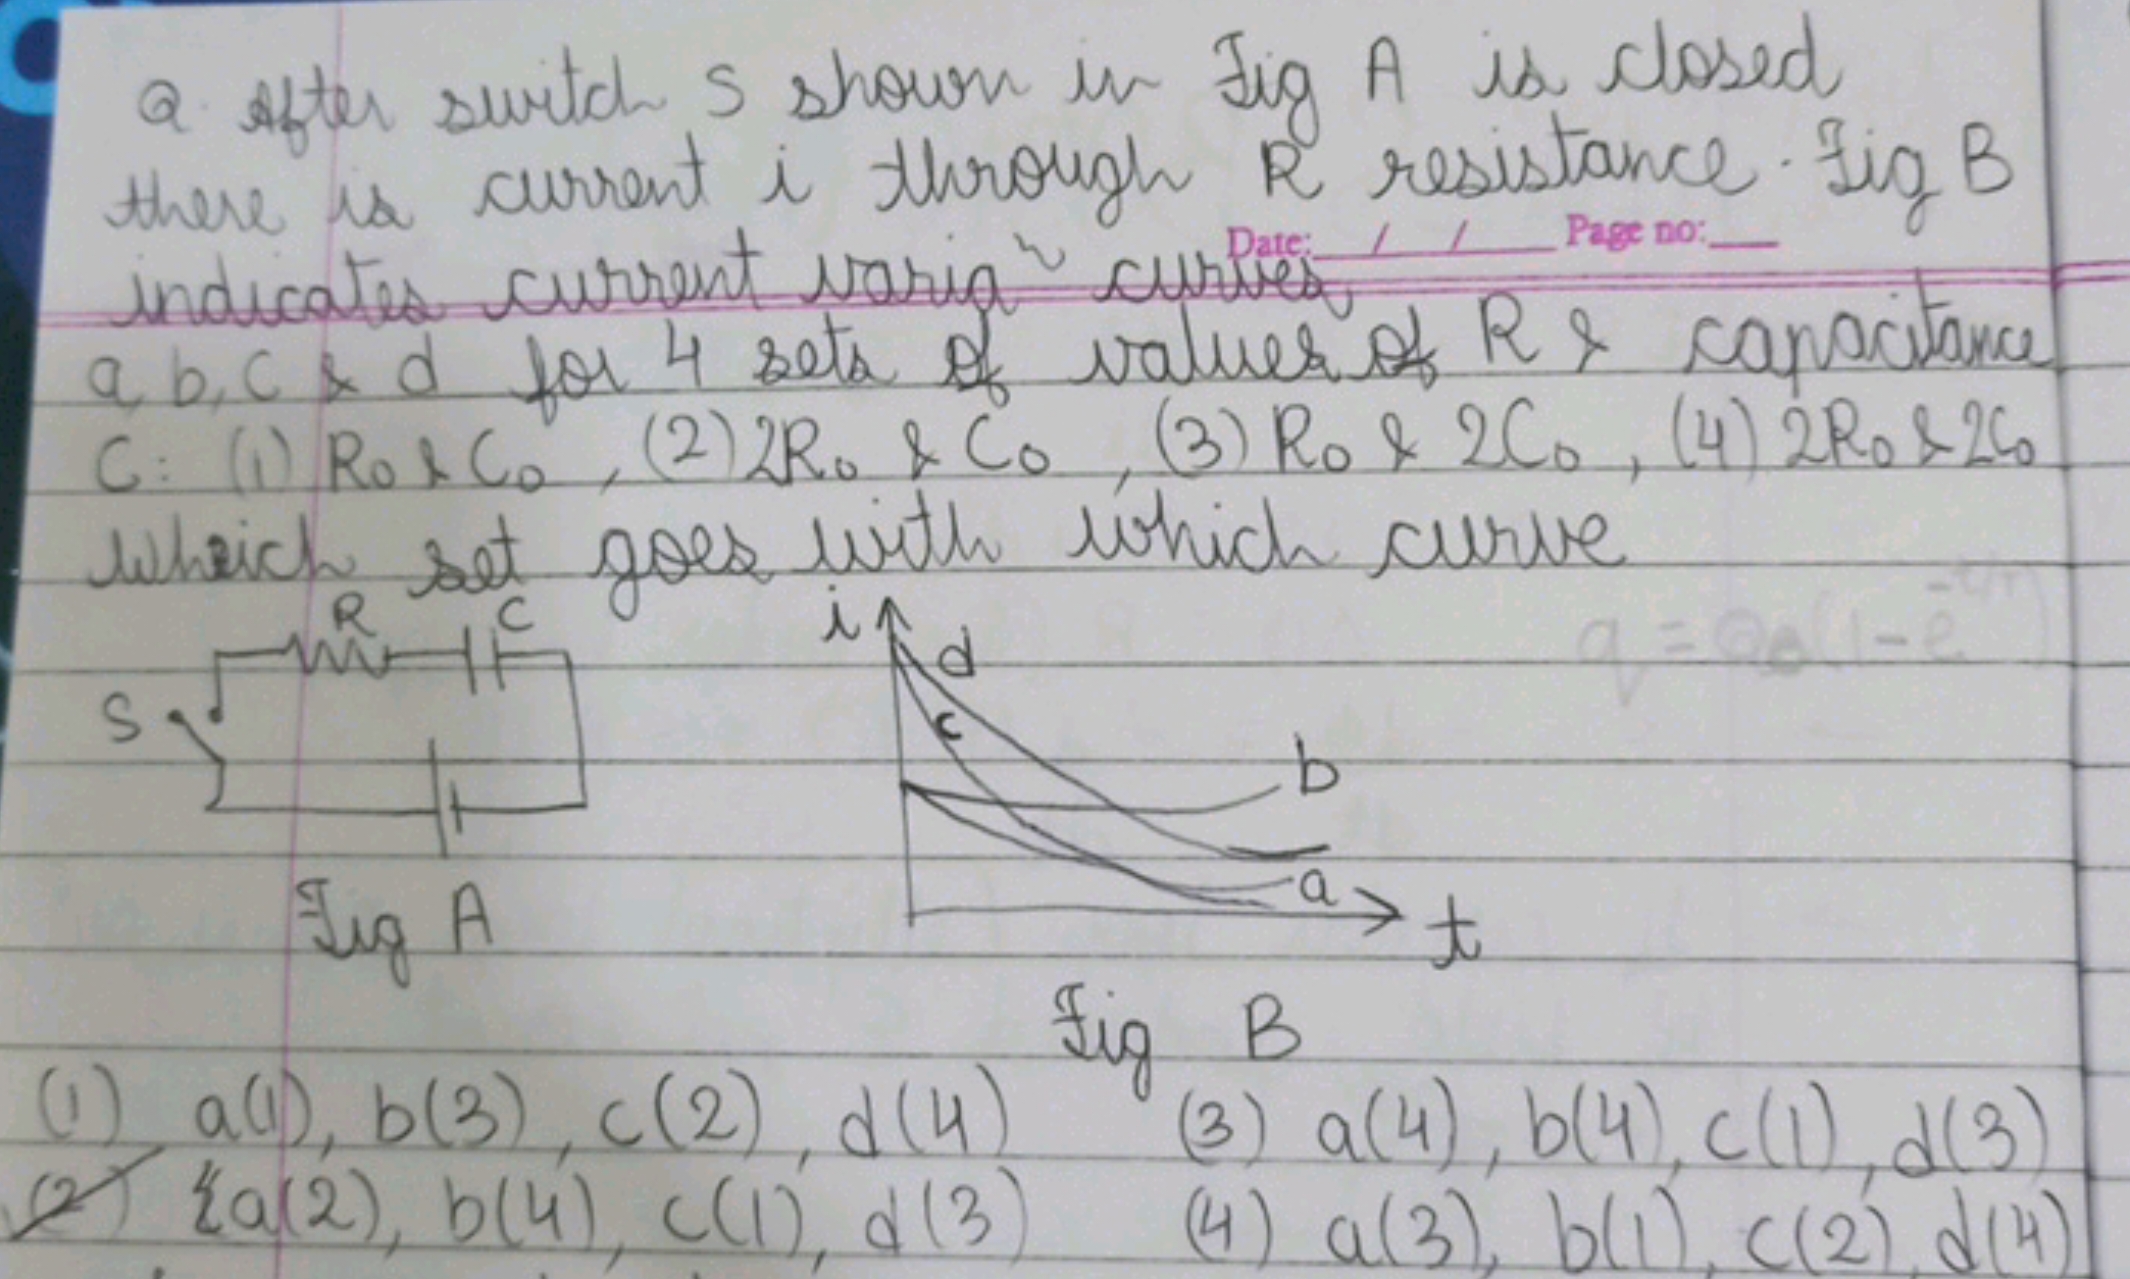 Q. After switch S shown in Fig A is closed
there is current i through R resistance. Fig B
Date: / / Page no:
indicates current variaⁿ curves
a, b, c & d for 4 sets of values of R & capacitance
C: (1) R₀ & C₀, (2) 2R₀ & C₀, (3) R₀ & 2C₀, (4) 2R₀ & 2C₀
Which set goes with which curve
R C
S
i
d
c
b
a
t
q = Q₀(1-e^-t/τ)
Fig A
Fig B
(1) a(1), b(3), c(2), d(4)
(3) a(4), b(4), c(1), d(3)
(2) a(2), b(4), c(1), d(3)
(4) a(3), b(1), c(2), d(4)